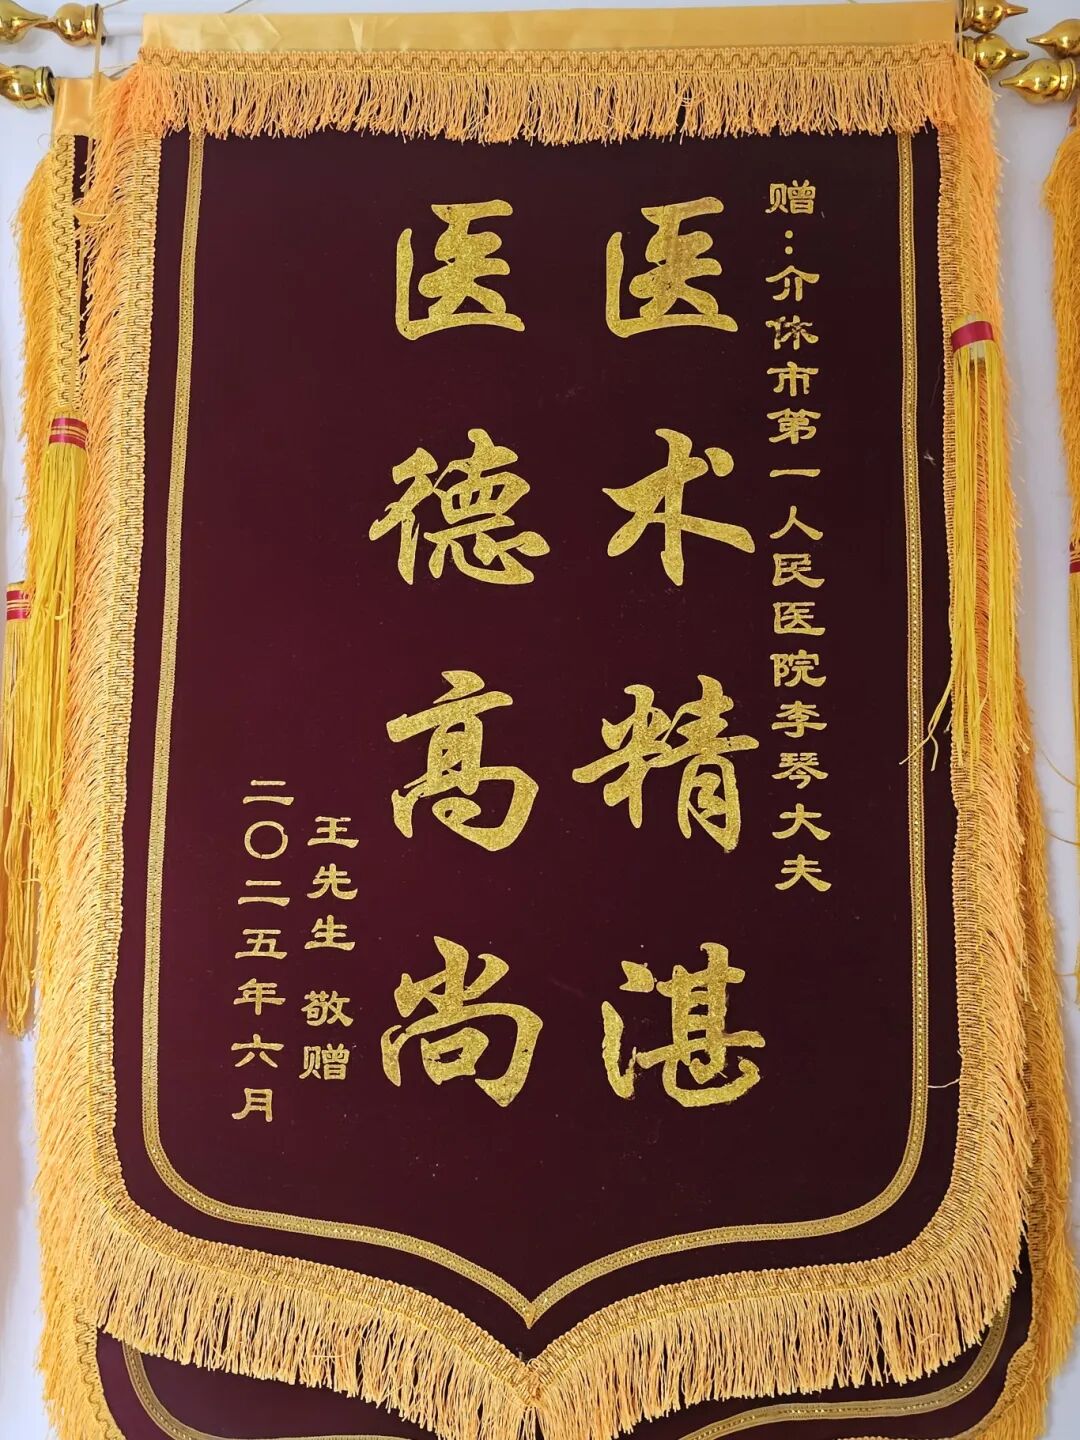 赠：介休市第一人民医院李琴大夫
医术精湛
医德高尚
王先生 敬赠
二〇二五年六月